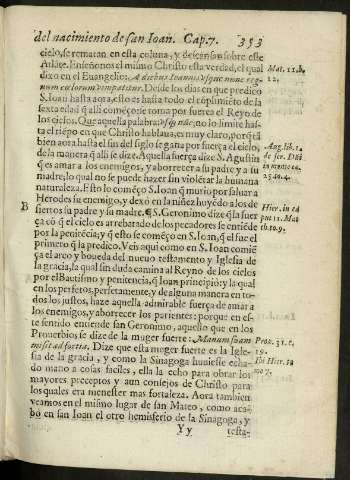 del nacimiento de san Ioan. Cap.7. 353
cielo, se rematan en esta coluna, y descansan sobre este
Atlãte. Enseñonos el mismo Christo esta verdad, el qual
dixo en el Euangelio: A diebus Ioannis vsque nunc reg-
num cœlorum vim patitur. Desde los dias en que predico
S. Ioan hasta aora, esto es hasta todo el cõplimiẽto de la
sexta edad q̃ alli començò se toma por fuerça el Reyno de
los cielos. Que aquella palabra vsque nunc, no lo limite has-
ta el tiẽpo en que Christo hablaua, es muy claro, porq̃ tã
bien aora hasta el fin del siglo se gana por fuerça el cielo,
de la manera q̃ alli se dize. Aquella fuerça dize S. Agustin
q̃ es amar a los enemigos, y aborreter a su padre y a su
madre, lo qual no se puede hazer sin violẽtar la humana
naturaleza. Esto lo comẽço S. Ioan q̃ murio por saluar a
Herodes su enemigo, y dexò en la niñez huyẽdo a los de
siertos su padre y su madre. ¶ S. Geronimo dize q̃ la fuer
ça cõ q̃ el cielo es arrebatado de los pecadores se entiẽde
por la penitẽcia; y q̃ esto se comẽço en S. Ioan, q̃ el fue el
primero q̃ la predico. Veis aqui como en S. Ioan comiẽ
ça el arco y boueda del nueuo testamento y Iglesia de
la gracia, la qual sin duda camina al Reyno de los cielos
por el Bautismo y penitencia, q̃ Ioan principiò; y la qual
en los perfetos, perfetamente, y de alguna manera en to-
dos los justos, haze aquella admirable fuerça de amar a
los enemigos, y aborrecer los parientes: porque en es-
te sentido entiende san Geronimo, aquello que en los
Prouerbios se dize de la muger fuerte: Manum suam
misit ad fortia. Dize que esta muger fuerte es la Igle-
sia de la gracia, y como la Sinagoga huuiesse echa-
do mano a cosas faciles, ella la echo para obrar los
mayores preceptos y aun consejos de Christo para
los quales era menester mas fortaleza. Aora tambien
veamos en el mismo lugar de san Mateo, como aca-
bò en san Ioan el otro hemisferio de la Sinagoga, y
Yy testa-
Mat. 11. b.
12.
Aug. lib. 1.
15. 10. 4.
B
Hier. in
pat 11. Mat
tb. 10. 9.
Prou. 31. c.
19.